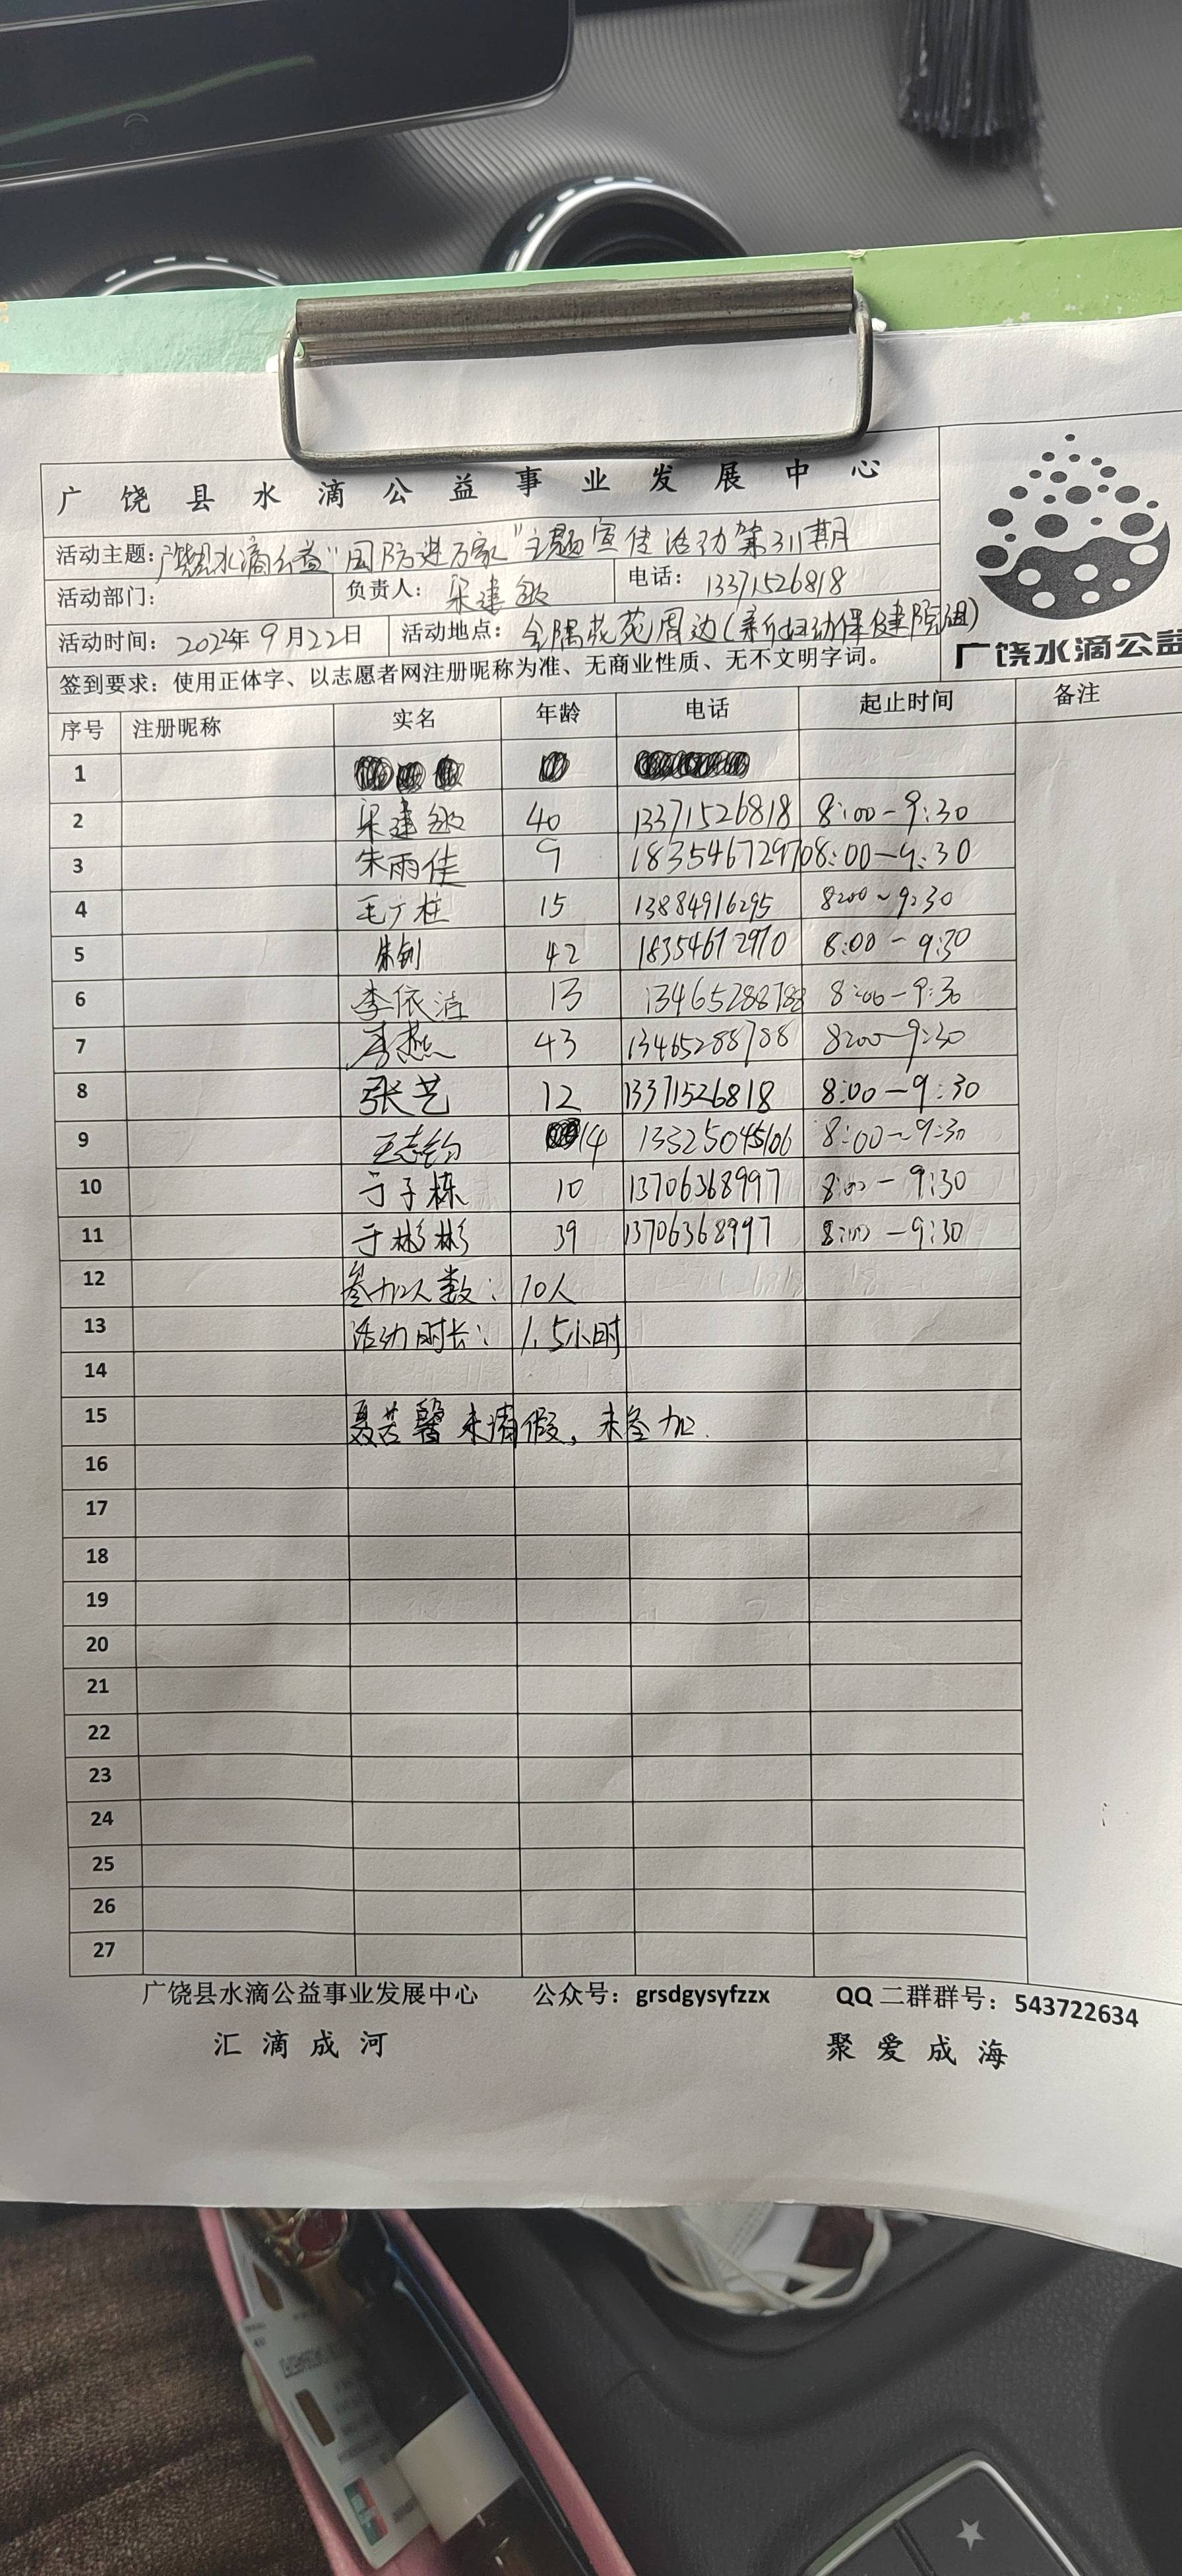 广饶县水滴公益事业发展中心
活动主题：广饶县水滴公益"国防进万家"主题宣传活动第311期
活动部门： 负责人：宋建敏 电话：13371526818
活动时间：2024年9月22日 活动地点：金隅花苑周边(新妇幼保健院组)
广饶水滴公益
签到要求：使用正体字、以志愿者网注册昵称为准、无商业性质、无不文明字词。
序号 注册昵称 实名 年龄 电话 起止时间 备注
1
2 宋建敏 40 13371526818 8:00-9:30
3 朱雨佳 9 18354672970 8:00-9:30
4 毛广柱 15 13884916295 8:00~9:30
5 朱钊 42 18354672970 8:00-9:30
6 李依洁 13 13465288788 8:00-9:30
7 李燕 43 13465288788 8:00~9:30
8 张艺 12 13371526818 8:00-9:30
9 王志钧 14 13325045106 8:00-9:30
10 于子栋 10 13706368997 8:00-9:30
11 于彬彬 39 13706368997 8:00-9:30
12 参加人数：10人
13 活动时长：1.5小时
14
15 聂若馨未请假，未参加.
16
17
18
19
20
21
22
23
24
25
26
27
广饶县水滴公益事业发展中心 公众号：grsdgysyfzzx QQ二群群号：543722634
汇滴成河 聚爱成海